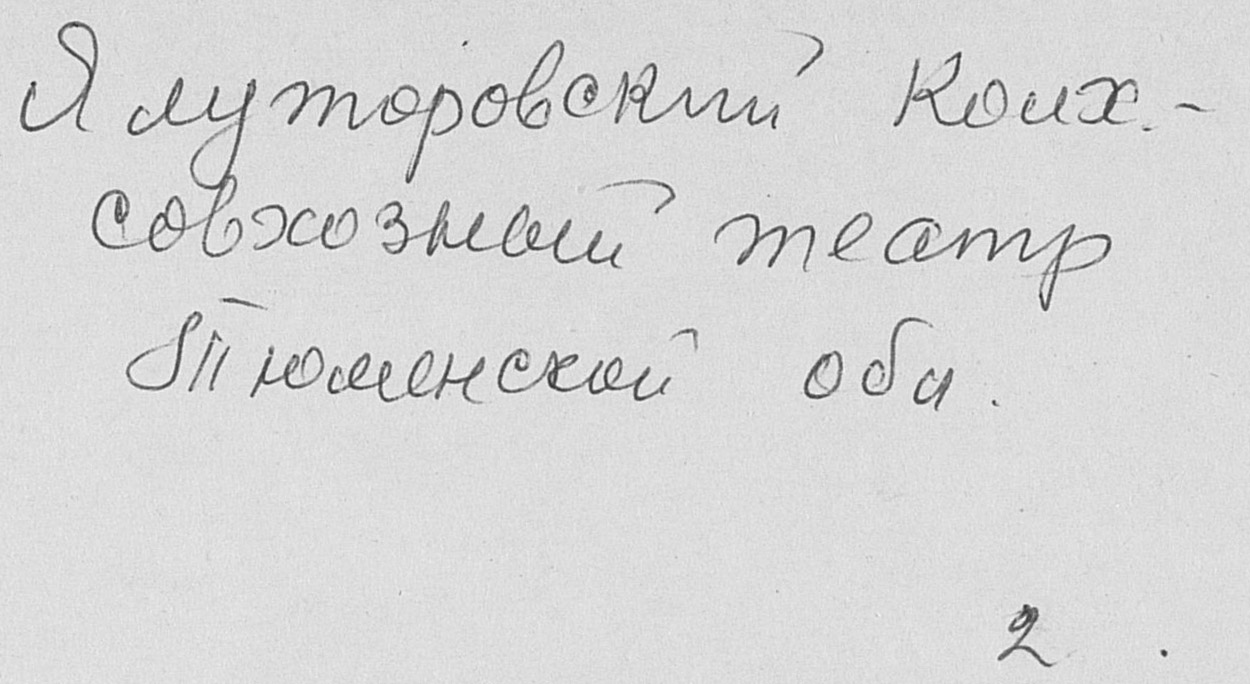 Ялуторовский Колх.-
совхозный театр
Тюменской обл.
2.